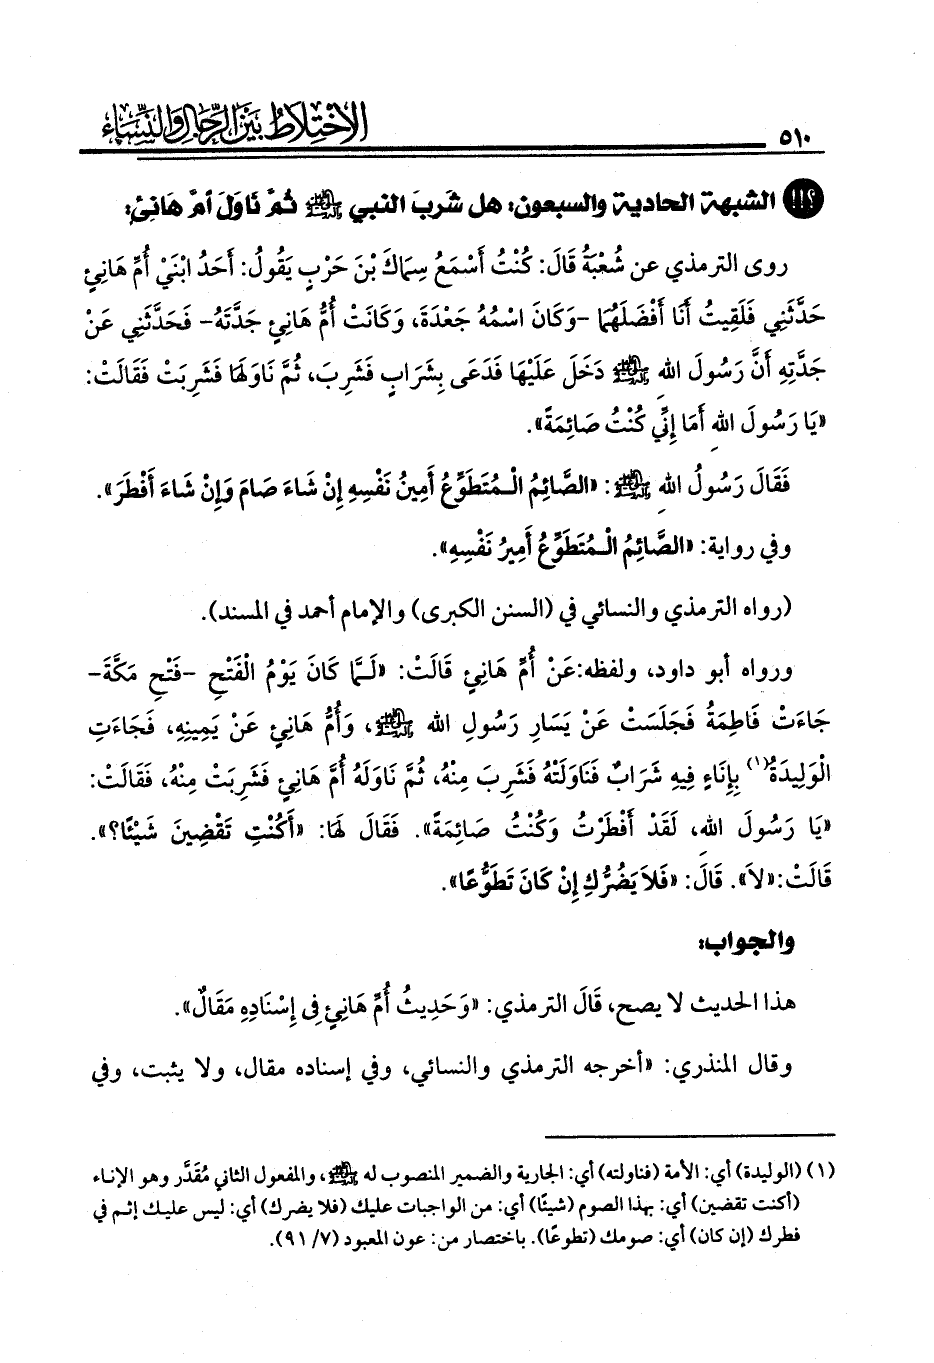 ٥١٠
الاختلاط بين الرجال والنساء
الشبهة الحادية والسبعون: هل شَرِبَ النبي ﷺ ثُمَّ نَاوَلَ أمَّ هَانِئ:
روى الترمذي عن شُعْبَةُ قَالَ: كُنْتُ أَسْمَعُ سِمَاكَ بْنَ حَرْبٍ يَقُولُ: أَحَدُ ابْنَيْ أُمِّ هَانِئٍ
حَدَّثَنِي فَلَقِيتُ أَنَا أَفْضَلَهُمَا –وَكَانَ اسْمُهُ جَعْدَةَ، وَكَانَتْ أُمُّ هَانِئٍ جَدَّتَهُ– فَحَدَّثَنِي عَنْ
جَدَّتِهِ أَنَّ رَسُولَ اللهِ ﷺ دَخَلَ عَلَيْهَا فَدَعَى بِشَرَابٍ فَشَرِبَ، ثُمَّ نَاوَلَهَا فَشَرِبَتْ فَقَالَتْ:
«يَا رَسُولَ اللهِ أَمَا إِنِّي كُنْتُ صَائِمَةً».
فَقَالَ رَسُولُ اللهِ ﷺ: «الصَّائِمُ الْـمُتَطَوِّعُ أَمِينُ نَفْسِهِ إِنْ شَاءَ صَامَ وَإِنْ شَاءَ أَفْطَرَ».
وفي رواية: «الصَّائِمُ الْـمُتَطَوِّعُ أَمِيرُ نَفْسِهِ».
(رواه الترمذي والنسائي في (السنن الكبرى) والإمام أحمد في المسند).
ورواه أبو داود، ولفظه:عَنْ أُمِّ هَانِئٍ قَالَتْ: «لَـمَّا كَانَ يَوْمُ الْفَتْحِ –فَتْحِ مَكَّةَ–
جَاءَتْ فَاطِمَةُ فَجَلَسَتْ عَنْ يَسَارِ رَسُولِ اللهِ ﷺ، وَأُمُّ هَانِئٍ عَنْ يَمِينِهِ، فَجَاءَتِ
الْوَلِيدَةُ(١) بِإِنَاءٍ فِيهِ شَرَابٌ فَنَاوَلَتْهُ فَشَرِبَ مِنْهُ، ثُمَّ نَاوَلَهُ أُمَّ هَانِئٍ فَشَرِبَتْ مِنْهُ، فَقَالَتْ:
«يَا رَسُولَ اللهِ، لَقَدْ أَفْطَرْتُ وَكُنْتُ صَائِمَةً». فَقَالَ لَهَا: «أَكُنْتِ تَقْضِينَ شَيْئًا؟».
قَالَتْ:«لاَ». قَالَ: «فَلاَ يَضُرُّكِ إِنْ كَانَ تَطَوُّعًا».
والجواب:
هذا الحديث لا يصح، قَالَ الترمذي: «وَحَدِيثُ أُمِّ هَانِئٍ فِى إِسْنَادِهِ مَقَالٌ».
وقال المنذري: «أخرجه الترمذي والنسائي، وفي إسناده مقال، ولا يثبت، وفي
(١) (الوليدة) أي: الأمة (فناولته) أي: الجارية والضمير المنصوب له ﷺ، والمفعول الثاني مُقَدَّر وهو الإناء
(أكنت تقضين) أي: بهذا الصوم (شيئًا) أي: من الواجبات عليك (فلا يضرك) أي: ليس عليك إثم في
فطرك (إن كان) أي: صومك (تطوعًا). باختصار من: عون المعبود (٧/ ٩١).